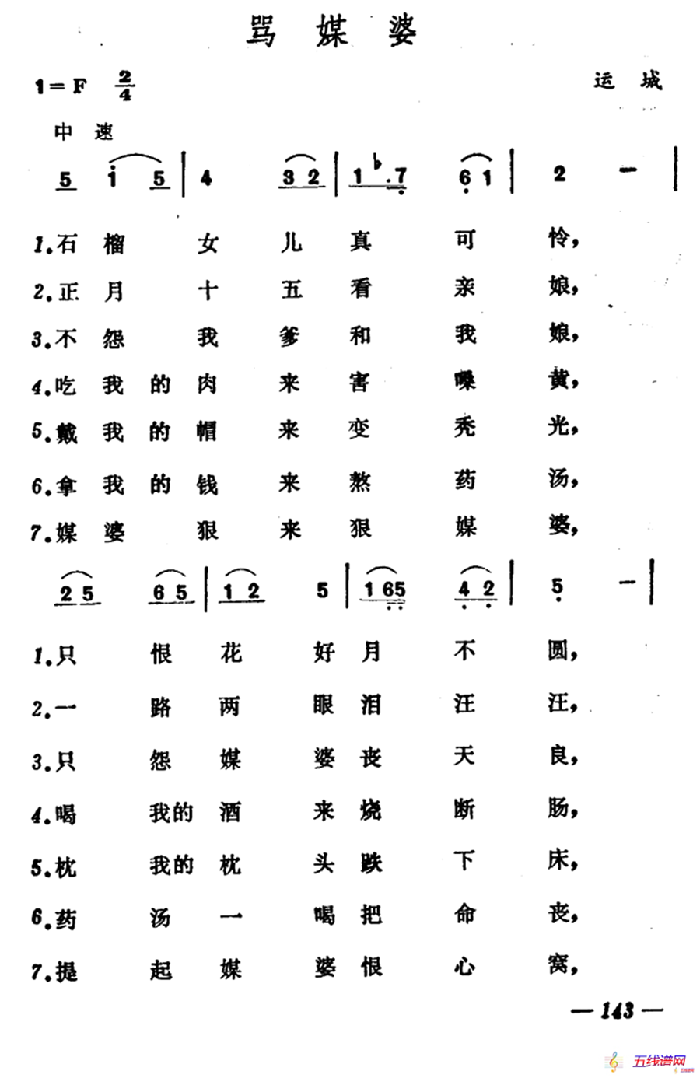 骂媒婆
1=F 2/4 运城
中速
5 i 5 | 4 3 2 | 1 ♭.7 6 1 | 2 — |
1.石榴女儿真可怜，
2.正月十五看亲娘，
3.不怨我爹和我娘，
4.吃我的肉来害嗓黄，
5.戴我的帽来变秃光，
6.拿我的钱来熬药汤，
7.媒婆狠来狠媒婆，
2 5 6 5 | 1 2 5 | 1 6 5 4 2 | 5 — |
1.只恨花好月不圆，
2.一路两眼泪汪汪，
3.只怨媒婆丧天良，
4.喝我的酒来烧断肠，
5.枕我的枕头跌下床，
6.药汤一喝把命丧，
7.提起媒婆恨心窝，
— 143 —
五线谱网